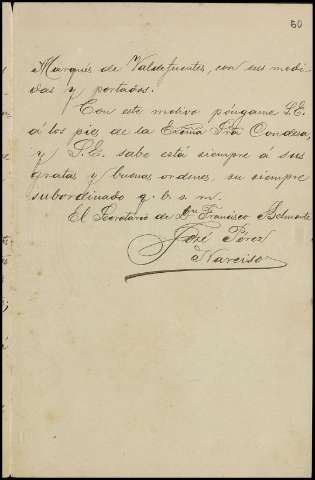 60
Marqués de Valdefuentes, con sus medi-
das y portados.
Con este motivo póngame S.E.
á los piés de la Excma Sra Condesa,
y S.E. sabe está siempre á sus
gratas y buenas ordenes, su siempre
subordinado q. b. s. m.
El Secretario de Dn Francisco Belmonte
José Pérez
Narciso